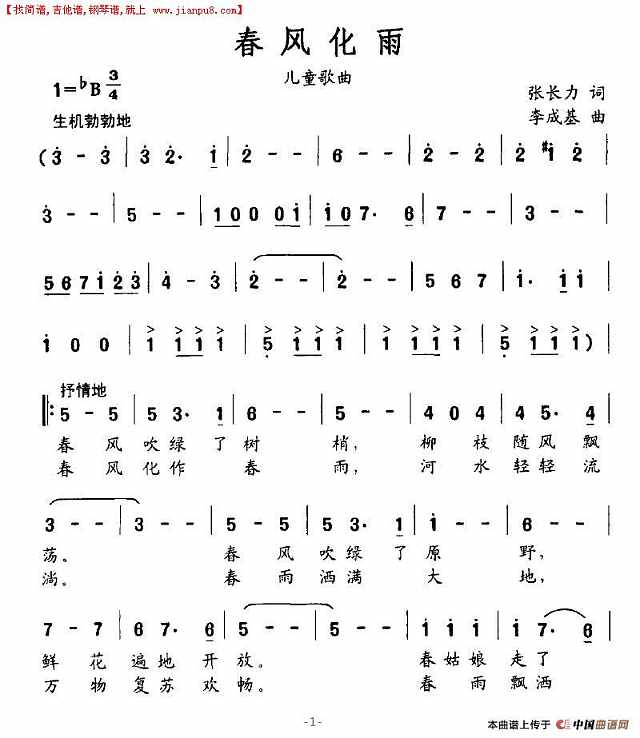 【找简谱,吉他谱,钢琴谱,就上 www.jianpu8.com】
春风化雨
儿童歌曲
1=♭B 3/4
张长力 词
李成基 曲
生机勃勃地
( 3̇ - 3̇ | 3̇ 2̇· 1̇ | 2̇ - - | 6 - - | 2̇ - 2̇ | 2̇ #1̇ 2̇ |
3̇ - - | 5 - - | 1̇00 001̇ | 1̇07· 6 | 7 - - | 3 - - |
567i̇2̇3̇ | 4̇ - 3̇ | 2̇ - - | 2̇ - - | 5 6 7 | 1̇· 1̇1̇ |
1̇ 0 0 | 1 111 | 5 111 | 1 111 | 5 111 | 1 1 1 )
抒情地
5 - 5 | 5 3· 1 | 6 - - | 5 - - | 4 0 4 | 4 5· 4 |
春 风 吹绿 了树 梢, 柳 枝 随风 飘
春 风 化作 春 雨, 河 水 轻轻 流
3 - - | 3 - - | 5 - 5 | 5 3· 1 | 1 - - | 6 - - |
荡。 春 风 吹绿 了原 野,
淌。 春 雨 洒满 大 地,
7 - 7 | 6 7· 6 | 5 - - | 5 - - | 1̇ 1̇ 1̇ | 1̇ 7· 6
鲜 花 遍地 开放。 春姑娘 走了
万 物 复苏 欢畅。 春 雨飘洒
-1-
本曲谱上传于 中国曲谱网